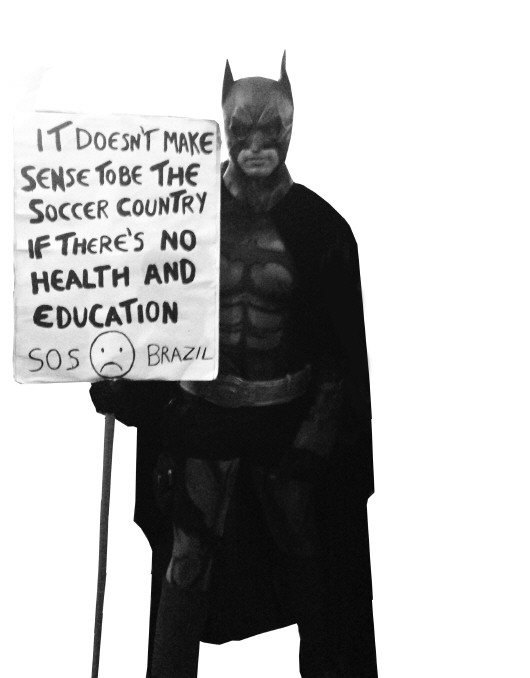 IT DOESN'T MAKE
SENSE TO BE THE
SOCCER COUNTRY
IF THERE'S NO
HEALTH AND
EDUCATION
SOS BRAZIL